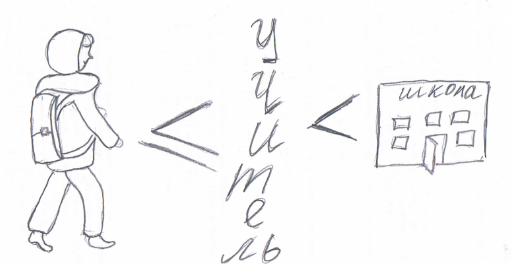 учитель
школа